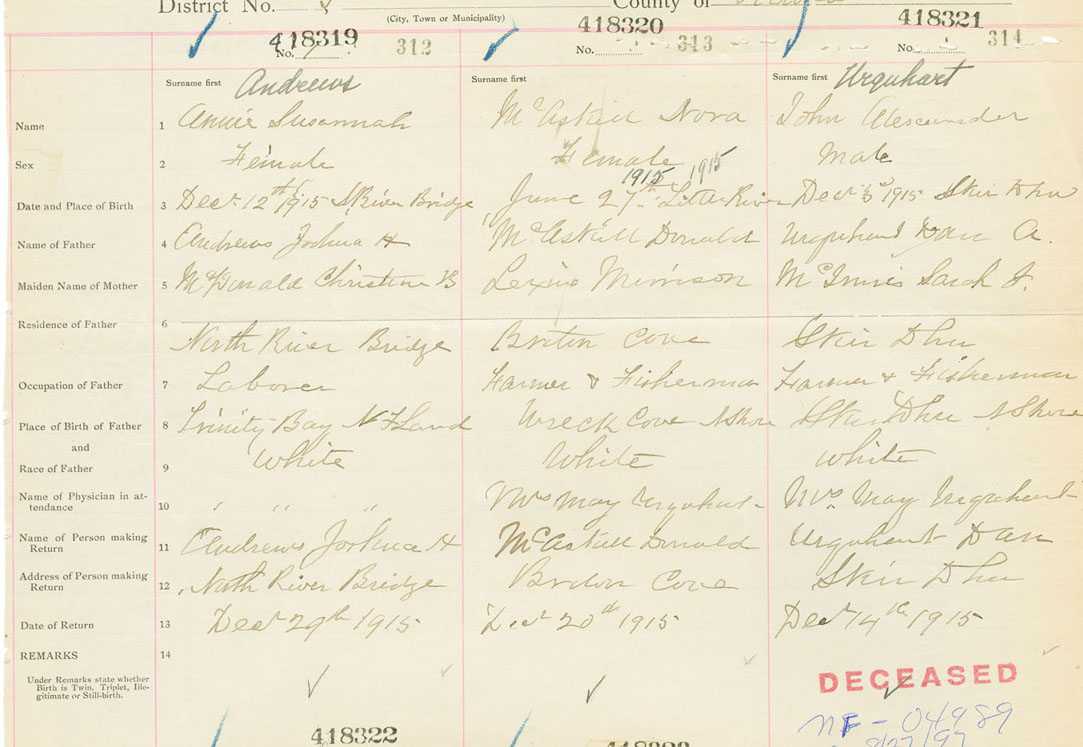 District No. 8 County of
(City, Town or Municipality)
418319 418320 418321
No. 312 No. 313 No. 314
Surname first Andrews Surname first Surname first Urquhart
Name 1 Annie Susannah McAskill Nora John Alexander
Sex 2 Female Female Male
1915 1915
Date and Place of Birth 3 Dec. 12th 1915 N River Bridge June 27th Little River Dec 3rd 1915 Skir Dhu
Name of Father 4 Andrews Joshua H McAskill Donald Urquhart Dan A.
Maiden Name of Mother 5 McDonald Christine B Lexie Morrison McInnis Sarah J.
Residence of Father 6
North River Bridge Briton Cove Skir Dhu
Occupation of Father 7 Laborer Farmer & Fisherman Farmer & Fisherman
Place of Birth of Father 8 Trinity Bay N F Land Wreck Cove N Shore Skir Dhu N Shore
and
Race of Father 9 White White White
Name of Physician in at-
tendance 10 " " " Mrs May Urquhart Mrs. May Urquhart
Name of Person making
Return 11 Andrews Joshua H McAskill Donald Urquhart Dan
Address of Person making
Return 12 North River Bridge Briton Cove Skir Dhu
Date of Return 13 Dec 29th 1915 Dec 20th 1915 Dec 14th 1915
REMARKS 14
Under Remarks state whether
Birth is Twin, Triplet, Ille-
gitimate or Still-birth.
DECEASED
NF - 04989
8/27/97
418322